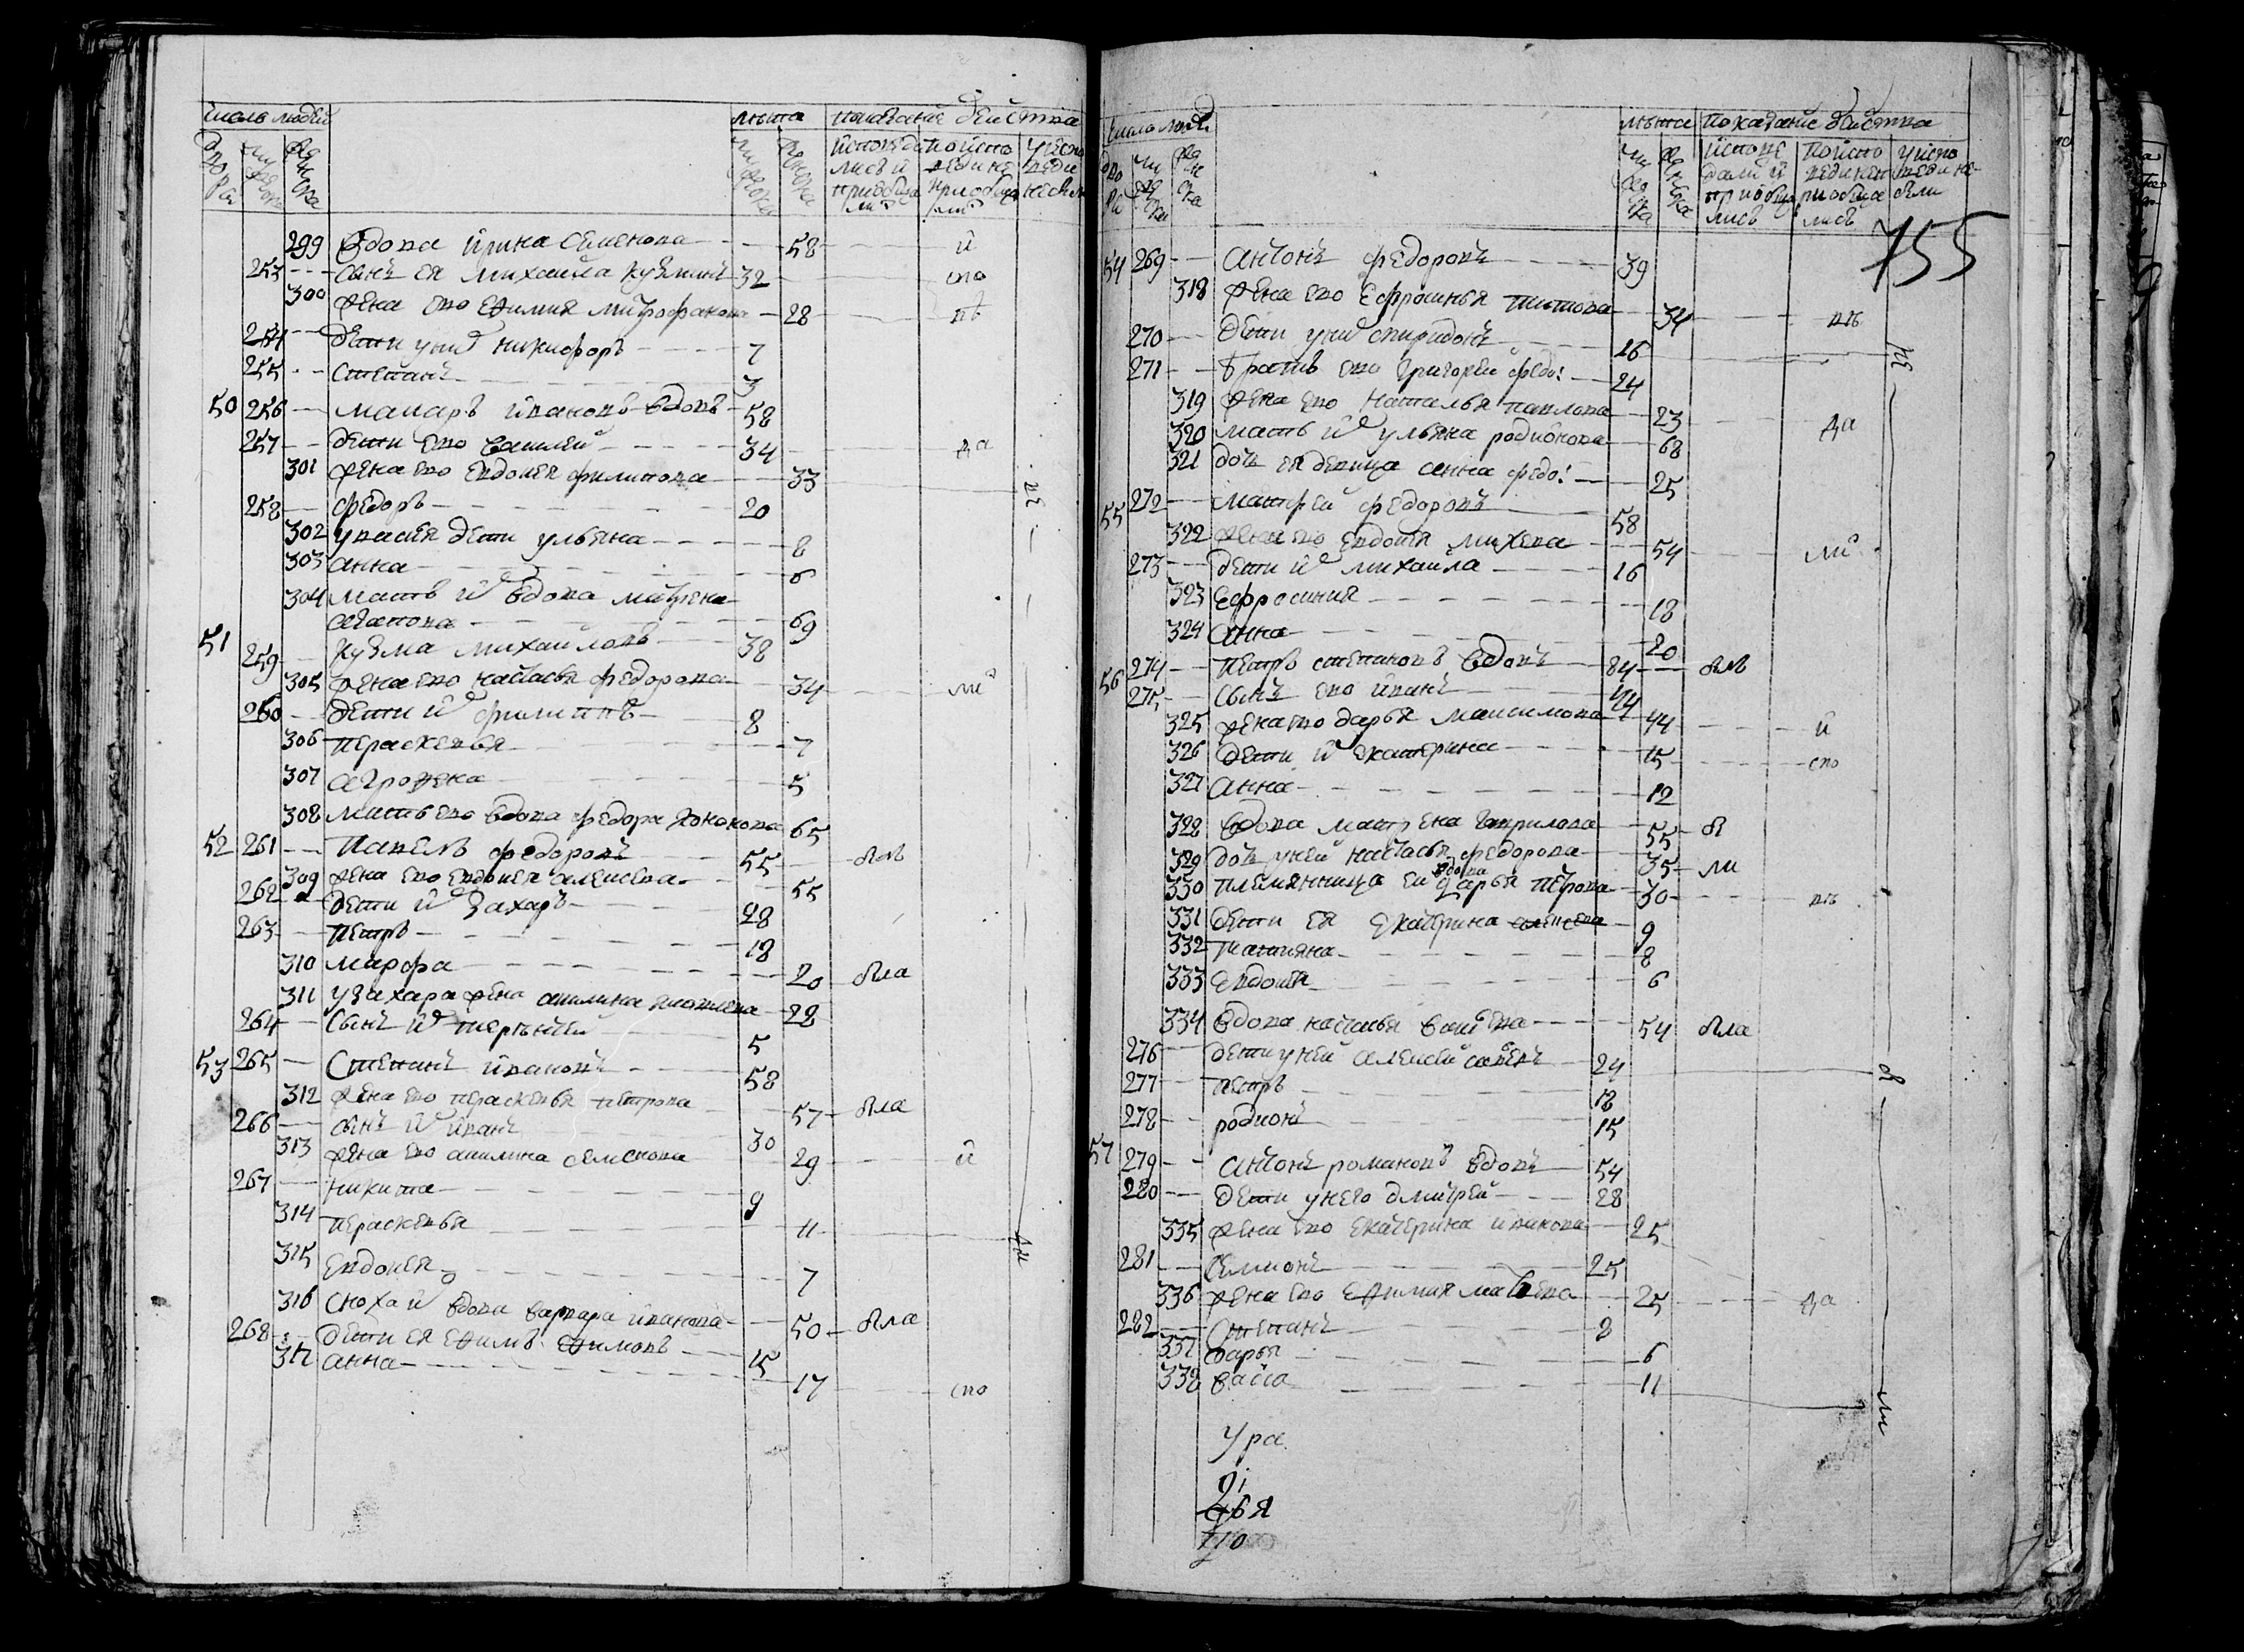 число людей
лѣта показание действа
дворы мужеска женска
мужеска женска
299 вдова ирина семенова 58 и
253 сынъ ея михаила кузминъ 32 спо
300 жена ево ефимия митрофанова 28 вѣ
254 дети у них никифоръ 7
255 степанъ 3
50 256 макаръ ивановъ вдовъ 58
257 дети ево василей 34 да
301 жена ево евдокея филипова 33
258 федоръ 20
302 у василья дети ульяна 8
303 анна 6
304 мать их вдова матрена
агапова 69
51 259 кузма михаиловъ 38
305 жена ево настасья федорова 34 ли
260 дети их филиппъ 8
306 перасковья 7
307 агрофена 5
308 мать ево вдова федора кононова 65
52 261 павелъ федоровъ 55 былъ
309 жена ево евдокея алексеева 55
262 дети их захаръ 28
263 петръ 18
310 марфа 20 была
311 у захара жена акилина яковлева 28
264 сынъ их терентей 5
53 265 степанъ ивановъ 58
312 жена ево перасковья петрова 57 была
266 сынъ их иванъ 30
313 жена ево акилина семенова 29 и
267 никита 9
314 перасковья 11
315 евдокея 7
316 сноха их вдова варвара иванова 50 была
268 дети ея ефимъ ефимовъ 15
317 анна 17 спо
число людей
лѣта показание действа
дворы мужеска женска
мужеска женска
755
54 269 антонъ федоровъ 39
318 жена ево ефросинья титова 34 вѣ
270 дети у них спиридонъ 16
271 братъ ево григорей федо: 24
319 жена ево наталья павлова 23 да
320 мать их ульяна родионова 68
321 дочь ея девица анна федо: 25
55 272 матфей федоровъ 58
322 жена ево евдотья михева 54 ли
273 дети их михаила 16
323 ефросиния 18
324 анна 20
56 274 петръ степановъ вдовъ 84 былъ
275 сынъ ево иванъ 44
325 жена ево дарья максимова 44 и
326 дети их екатерина 15 спо
327 анна 12
328 вдова матрена гаврилова 55 бы
329 дочь у ней настасья федорова 35 ли
330 племянница ей вдова дарья петрова 30 вѣ
331 дети ея екатерина алексева 9
332 татияна 8
333 евдотья 6
334 вдова настасья васи:ева 54 была
276 дети у ней алексей савевъ 24
277 петръ 18
278 родионъ 15
57 279 антонъ романовъ вдовъ 54
280 дети у него дмитрей 28
335 жена ево екатерина иванова 25
281 семионъ 25
336 жена ево ефимия матвева 25 да
282 степанъ 8
337 дарья 6
338 васса 11